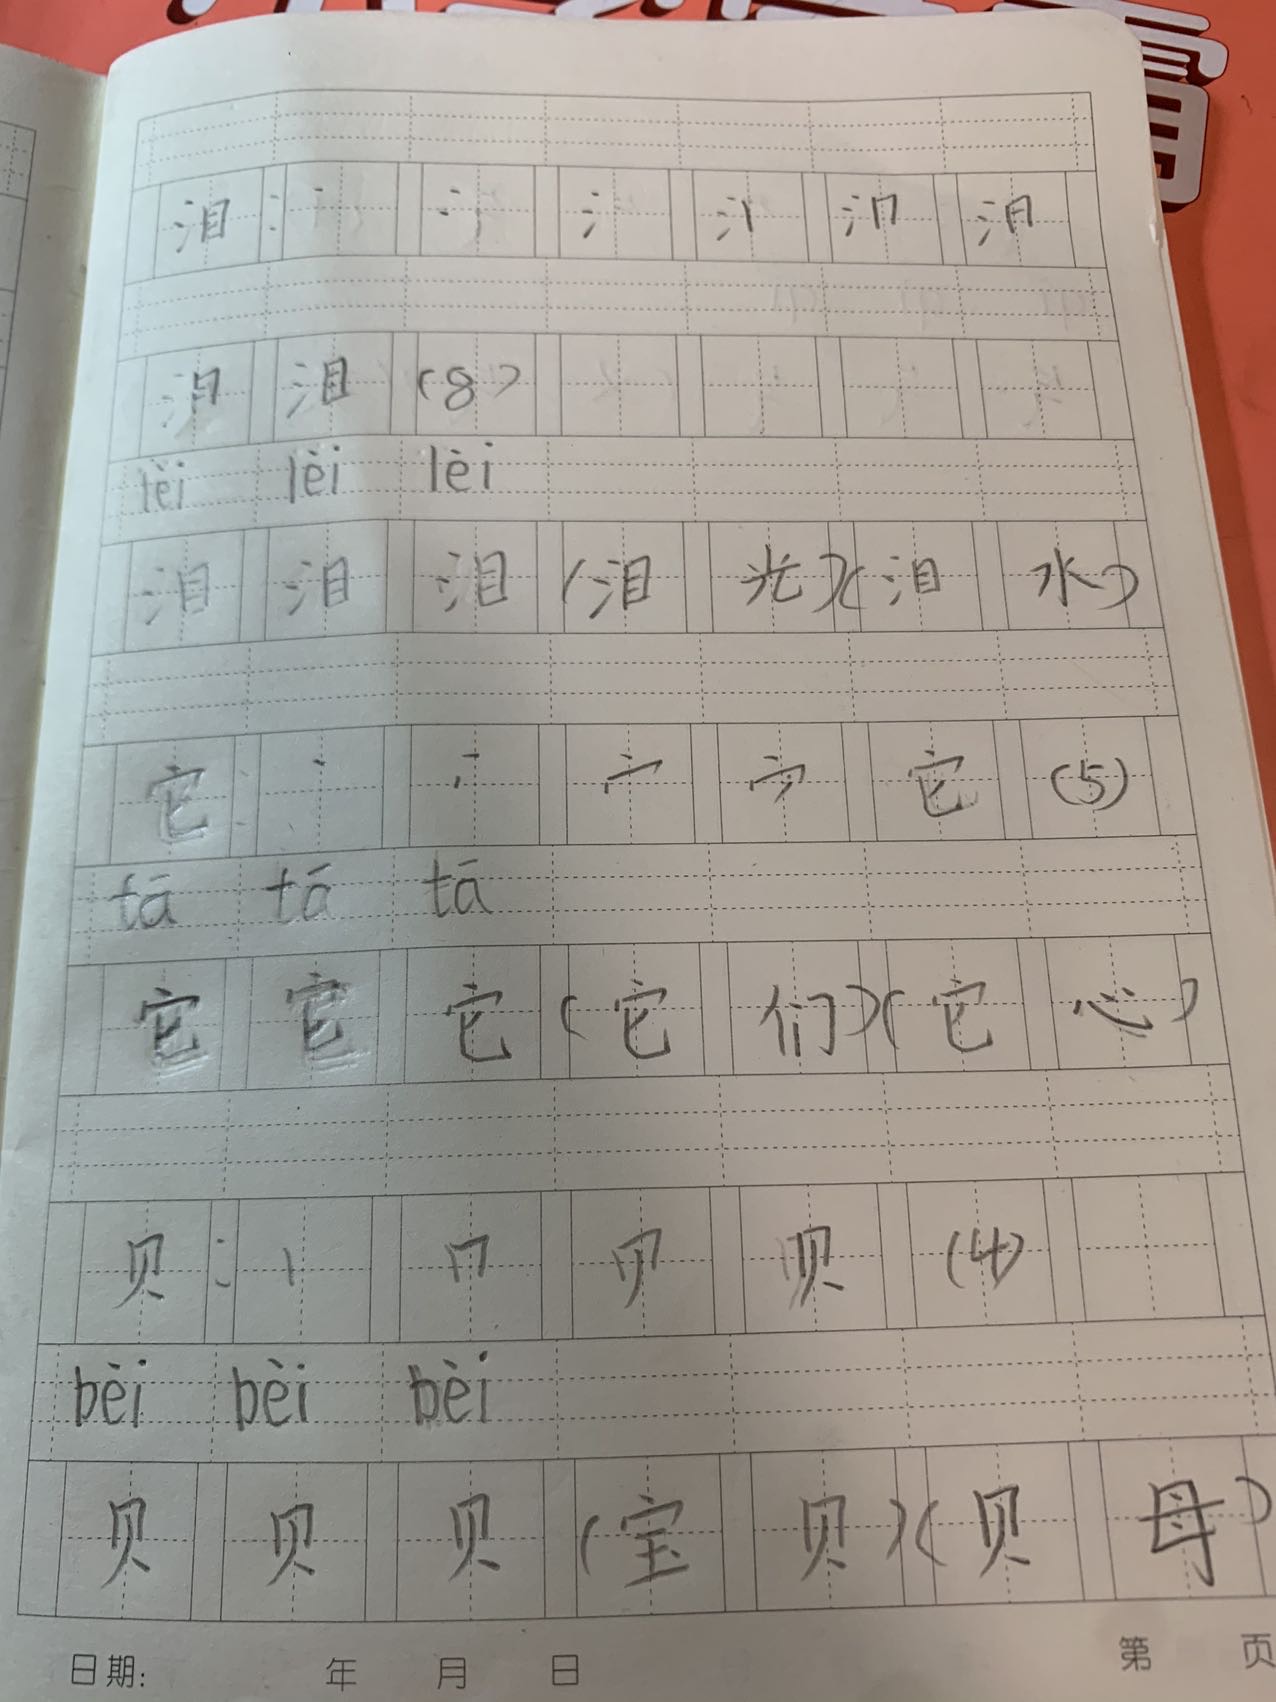 泪: 丶 冫 氵 氵丨 氵冂 汩
汩 泪 (8)
lèi lèi lèi
泪 泪 泪 (泪光)(泪水)
它: 丶 丷 宀 宀 它 (5)
tā tā tā
它 它 它 (它们)(它心)
贝: 丨 冂 贝 贝 (4)
bèi bèi bèi
贝 贝 贝 (宝贝)(贝母)
日期: 年 月 日 第 页